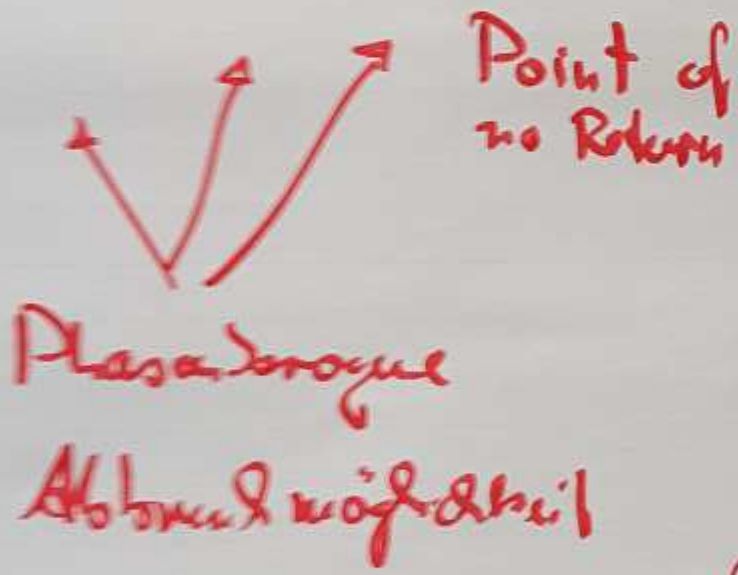 Point of
no Return
Phasen
Abbruchmöglichkeit